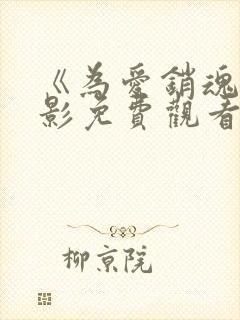 《為愛銷魂
影免費觀看
柳京院